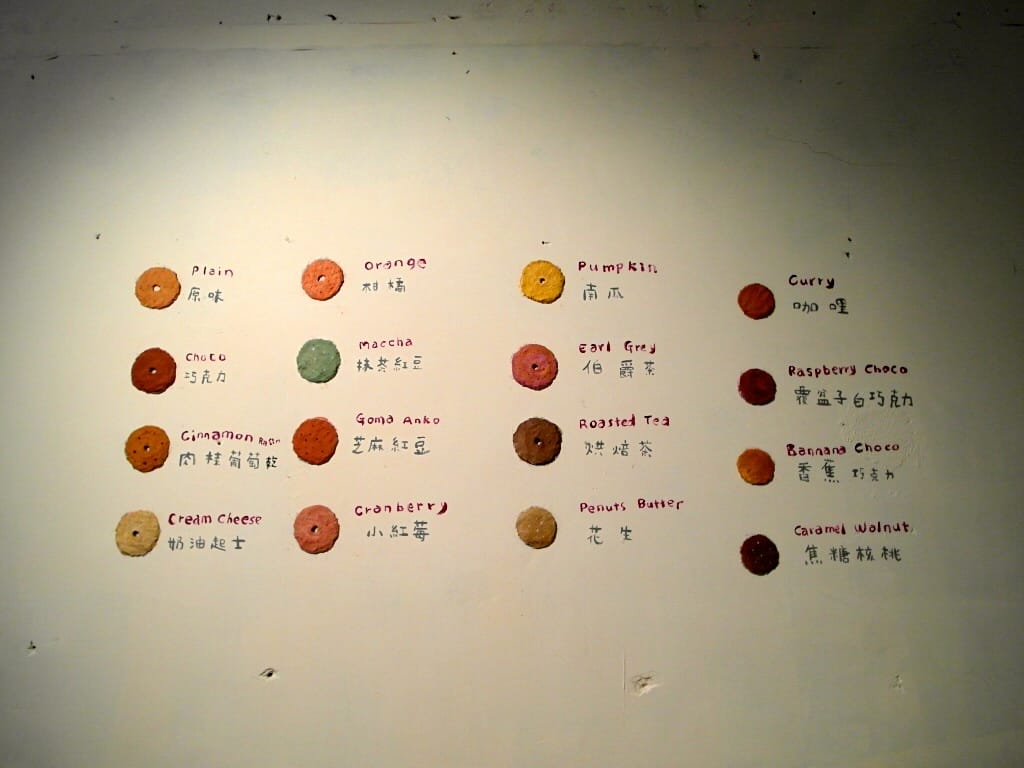 Plain
原味
Choco
巧克力
Cinnamon Raisin
肉桂葡萄乾
Cream Cheese
奶油起士
Orange
柑橘
Maccha
抹茶紅豆
Goma Anko
芝麻紅豆
Cranberry
小紅莓
Pumpkin
南瓜
Earl Grey
伯爵茶
Roasted Tea
烘焙茶
Penuts Butter
花生
Curry
咖哩
Raspberry Choco
覆盆子白巧克力
Bannana Choco
香蕉巧克力
Caramel Walnut
焦糖核桃